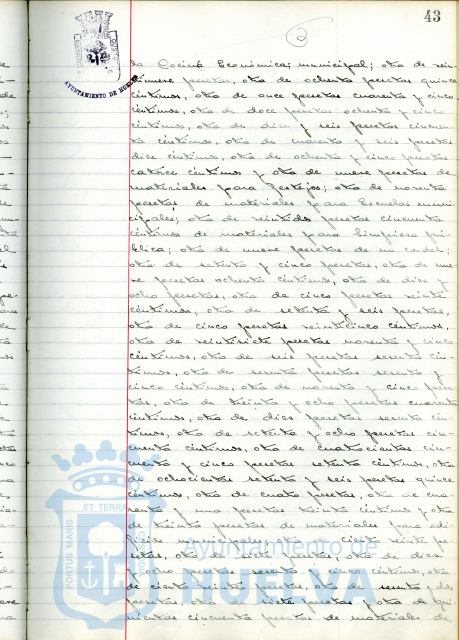 43
AYUNTAMIENTO DE HUELVA
la Cocina Económica municipal; otra de vein
tinueve pesetas, otra de ochenta pesetas quince
céntimos, otra de once pesetas cuarenta y cinco
céntimos, otra de doce pesetas ochenta y cinco
céntimos, otra de diez y seis pesetas cincuen
ta céntimos, otra de cuarenta y seis pesetas
diez céntimos, otra de ochenta y cinco pesetas
catorce céntimos y otra de nueve pesetas de
materiales para festejos; otra de noventa
pesetas, de materiales para Escuelas muni
cipales; otra de veintidos pesetas cincuenta
céntimos de materiales para limpieza pú-
blica; otra de nueve pesetas de
otra de setenta y cinco pesetas, otra de nue
ve pesetas ochenta céntimos, otra de diez y
ocho pesetas, otra de cinco pesetas veinte
céntimos, otra de setenta y seis pesetas,
otra de cinco pesetas veinticinco céntimos,
otra de veintisiete pesetas noventa y cinco
céntimos, otra de seis pesetas sesenta cén-
timos, otra de sesenta pesetas sesenta y
cinco céntimos, otra de noventa y cinco pese
tas, otra de treinta y ocho pesetas cuarenta
céntimos, otra de diez pesetas sesenta cén-
timos, otra de setenta y ocho pesetas cin-
cuenta céntimos, otra de cuatrocientas cin-
cuenta y cinco pesetas setenta céntimos, otra
de ochocientas setenta y seis pesetas quince
céntimos, otra de cuatro pesetas, otra de cua
renta y una pesetas treinta céntimos y otra
de treinta pesetas de materiales para edi-
ficios municipales; otra de ciento veinte pe-
setas, otra de pesetas, otra de diez
y ocho pesetas sesenta y cinco céntimos, otra
de ciento veinte pesetas, otra de sesenta y dos
pesetas, otra de siete pesetas y otra de qui-
nientas cincuenta pesetas de materiales de
ET TERRAE
PORTUS MARIS
Ayuntamiento de
HUELVA